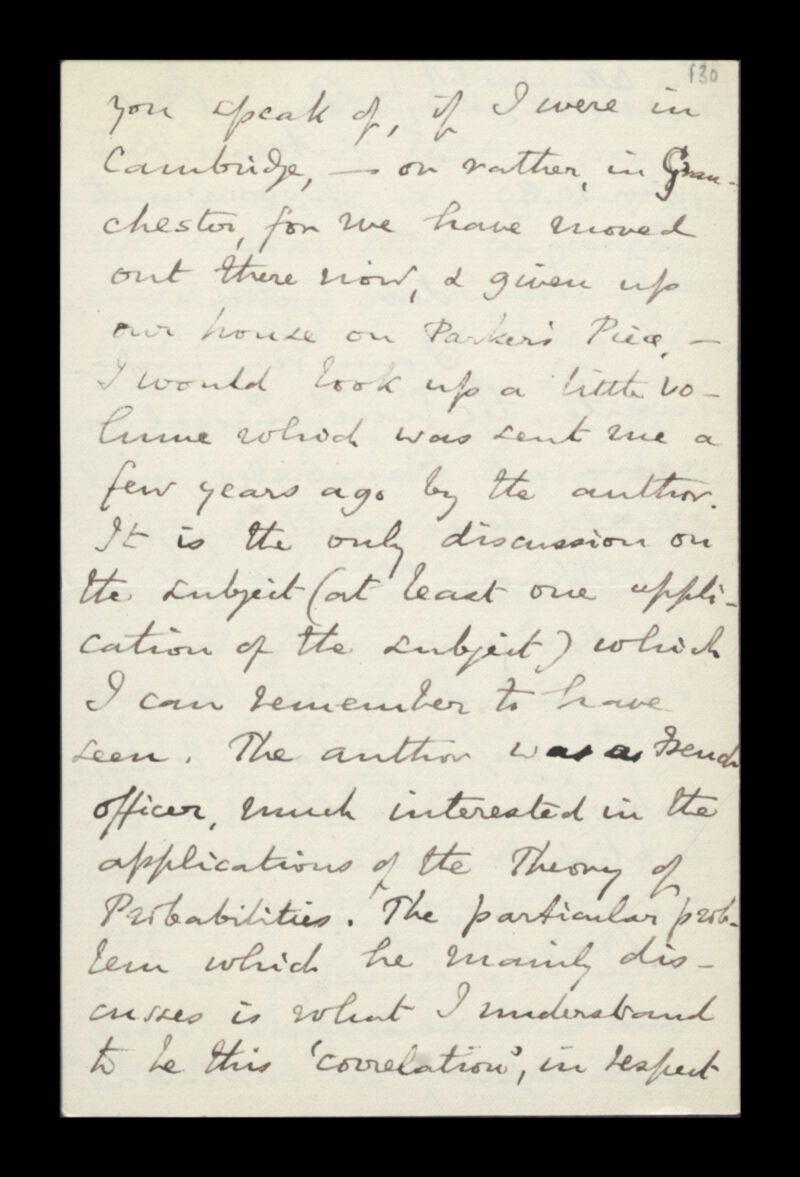 f30
you speak of, if I were in
Cambridge, — or rather, in Gran-
chester, for we have moved
out there now, & given up
our house on Parker's Piece, —
I would look up a little vo-
lume which was sent me a
few years ago by the author.
It is the only discussion on
the subject (at least one appli-
cation of the subject) which
I can remember to have
seen. The author was a French
officer, much interested in the
applications of the Theory of
Probabilities. The particular prob-
lem which he mainly dis-
cusses is what I understand
to be this 'correlation', in respect